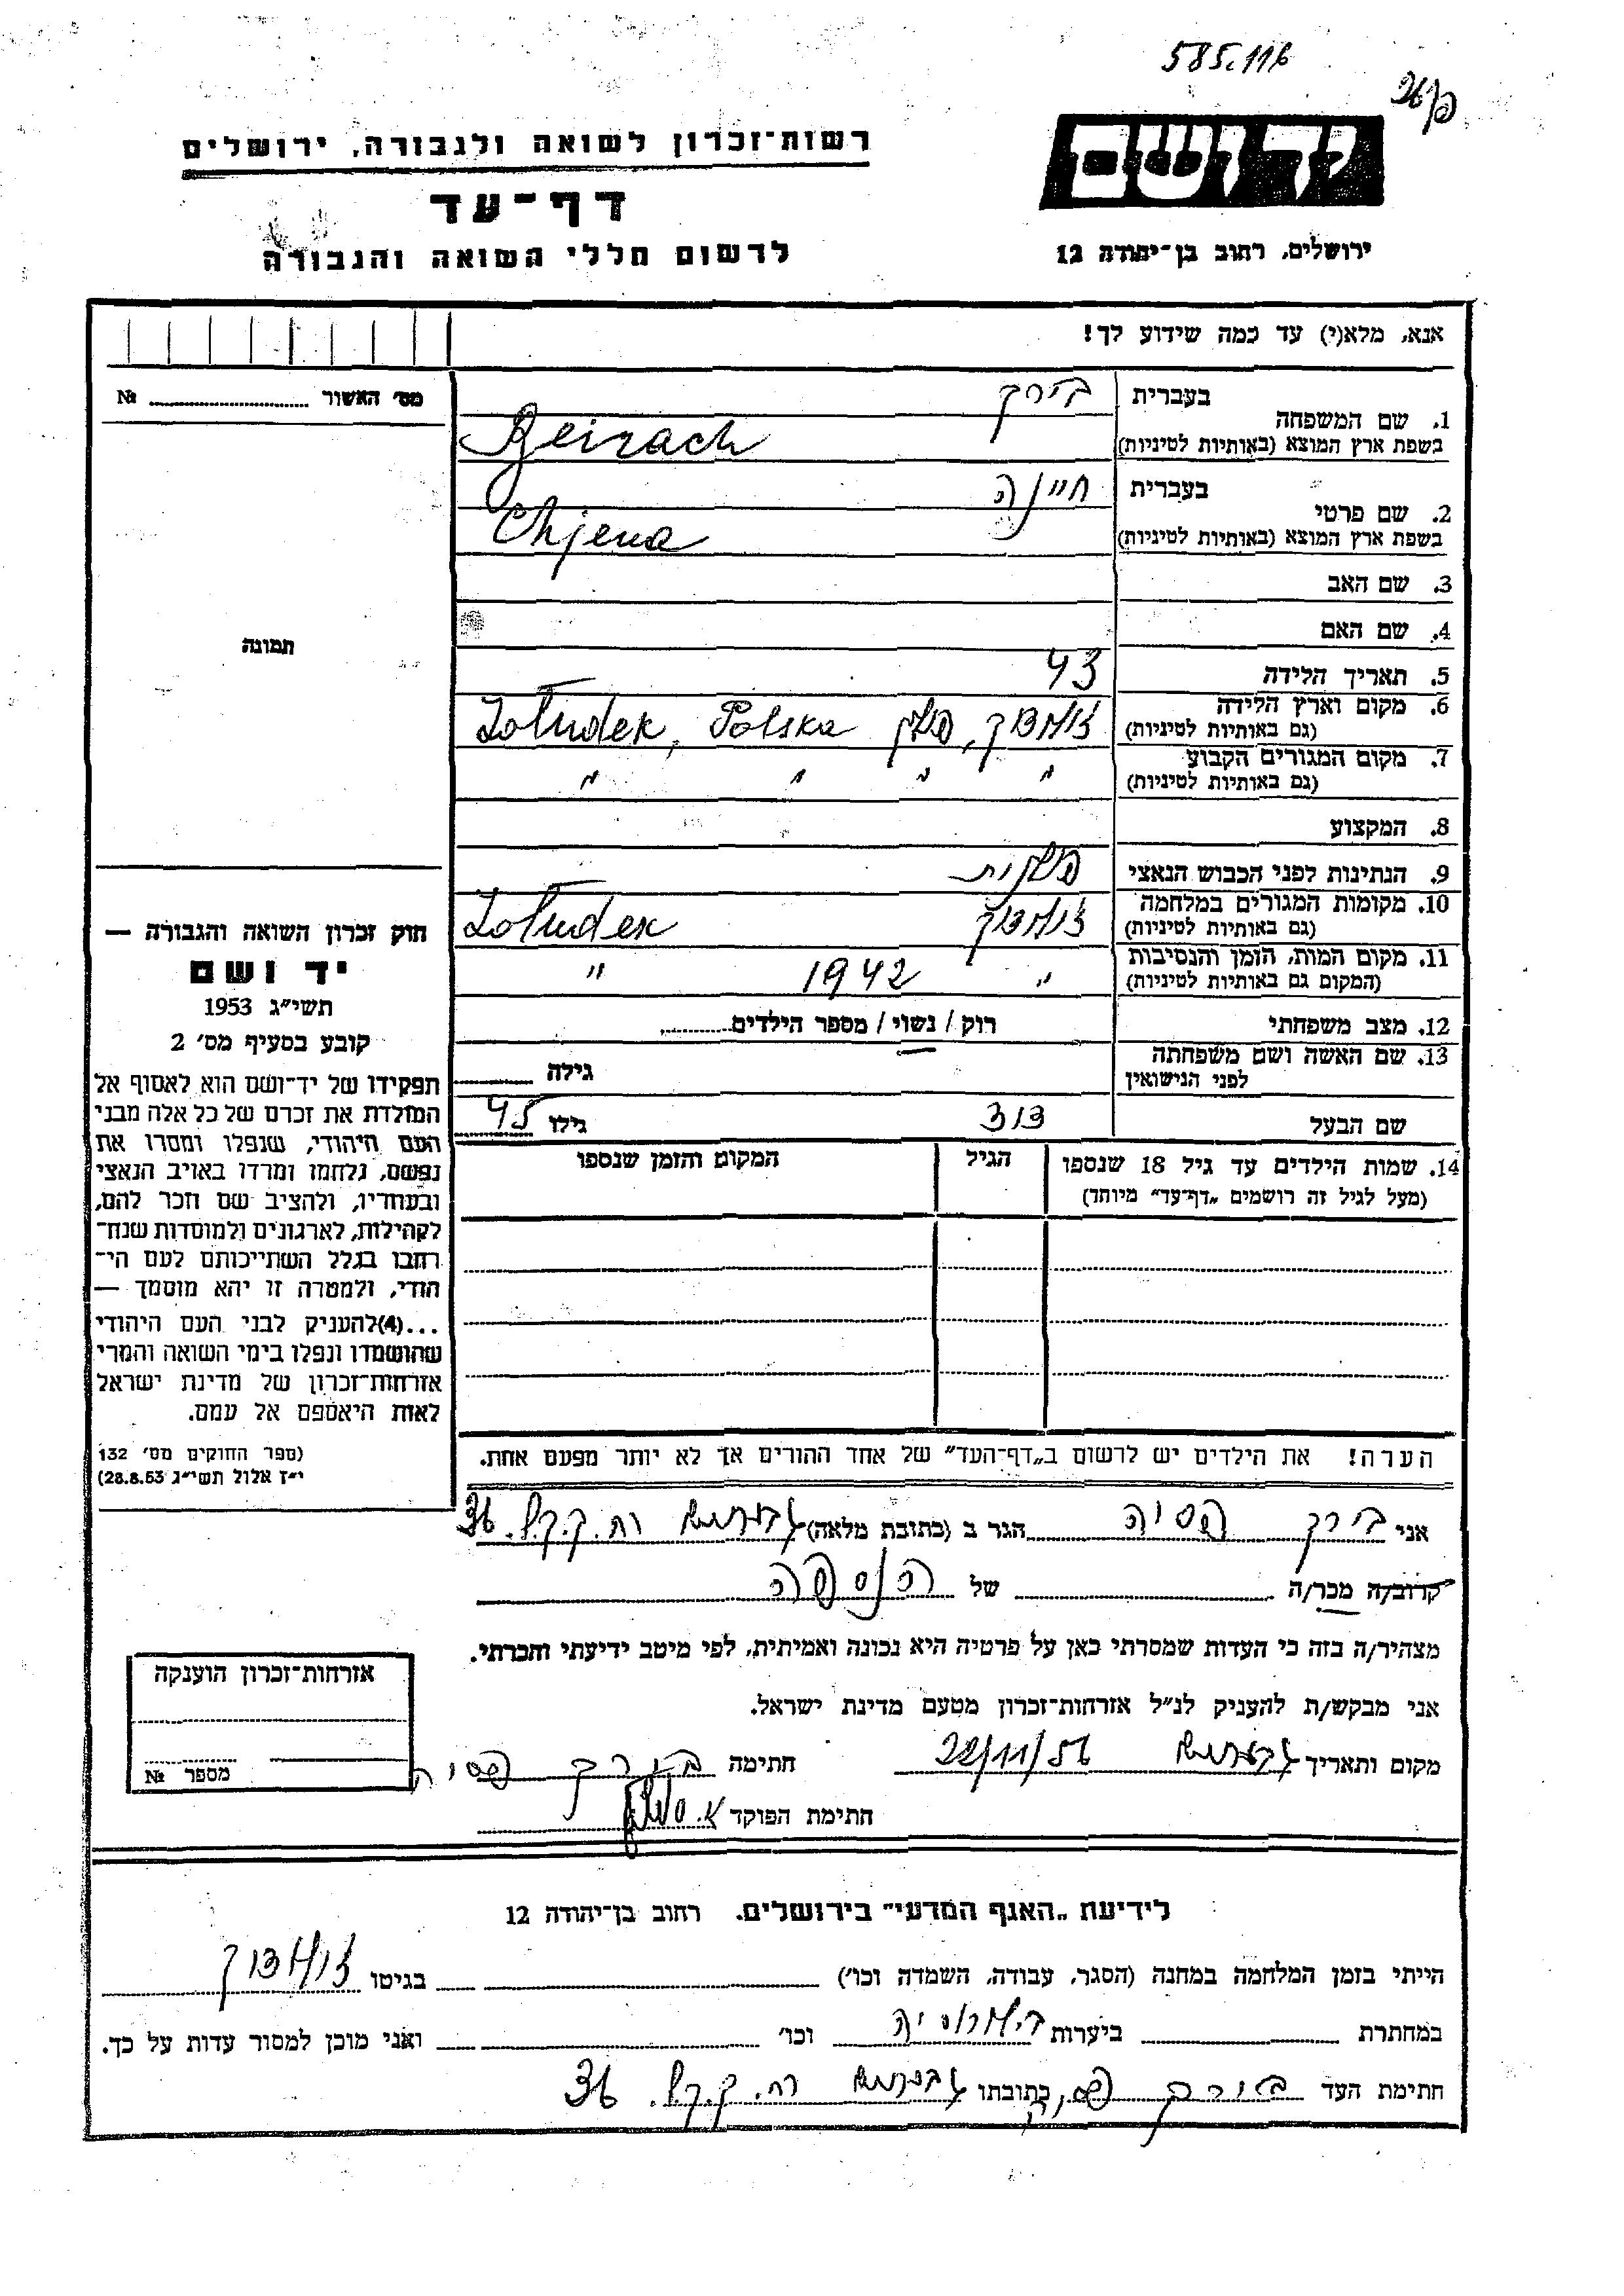 585.116
יד ושם
רשות־זכרון לשואה ולגבורה, ירושלים
דף־עד
לרשום חללי השואה והגבורה
ירושלים, רחוב בן־יהודה 12
אנא, מלא(י) עד כמה שידוע לך!
מס׳ האשור № 
1. שם המשפחה בעברית בירך
בשפת ארץ המוצא (באותיות לטיניות) Beirach
2. שם פרטי בעברית חיינה
בשפת ארץ המוצא (באותיות לטיניות) Chjena
3. שם האב
4. שם האם
תמונה
5. תאריך הלידה 43
6. מקום וארץ הלידה (גם באותיות לטיניות) זולודק, פולין Żołudek, Polska
7. מקום המגורים הקבוע (גם באותיות לטיניות) " " " "
8. המקצוע
9. הנתינות לפני הכבוש הנאצי פולנית
10. מקומות המגורים במלחמה (גם באותיות לטיניות) זולודק Żołudek
11. מקום המות, הזמן והנסיבות (המקום גם באותיות לטיניות) " 1942 "
12. מצב משפחתי רוק / נשוי / מספר הילדים
13. שם האשה ושם משפחתה לפני הנישואין גילה
שם הבעל דוד גילו 45
14. שמות הילדים עד גיל 18 שנספו הגיל המקום והזמן שנספו
(מעל לגיל זה רושמים „דף־עד” מיוחד)
חוק זכרון השואה והגבורה —
יד ושם
תשי״ג 1953
קובע בסעיף מס׳ 2
תפקידו של יד־ושם הוא לאסוף אל
המולדת את זכרם של כל אלה מבני
העם היהודי, שנפלו ומסרו את
נפשם, נלחמו ומרדו באויב הנאצי
ובעוזריו, ולהציב שם וזכר להם,
לקהילות, לארגונים ולמוסדות שנח־
רבו בגלל השתייכותם לעם הי־
הודי, ולמטרה זו יהא מוסמך —
...(4)להעניק לבני העם היהודי
שהושמדו ונפלו בימי השואה והמרי
אזרחות־זכרון של מדינת ישראל
לאות היאספם אל עמם.
(ספר החוקים מס׳ 132
י״ז אלול תשי״ג 28.8.53)
הערה! את הילדים יש לרשום ב„דף־העד” של אחד ההורים אך לא יותר מפעם אחת.
אני בירך פסיה הגר ב (כתובת מלאה) רח. ק.ק.ל. 36
קרוב/ה מכר/ה של הנספה
מצהיר/ה בזה כי העדות שמסרתי כאן על פרטיה היא נכונה ואמיתית, לפי מיטב ידיעתי והכרתי.
אני מבקש/ת להעניק לנ״ל אזרחות־זכרון מטעם מדינת ישראל.
מקום ותאריך 22/11/56 חתימה בירך פסיה
חתימת הפוקד
אזרחות־זכרון הוענקה
מספר №
לידיעת „האגף המדעי” בירושלים. רחוב בן־יהודה 12
הייתי בזמן המלחמה במחנה (הסגר, עבודה, השמדה וכו׳) בגיטו זולודק
במחתרת ביערות ביילורוסיה וכו׳ ואני מוכן למסור עדות על כך.
חתימת העד בירך פסיה כתובתו רח. ק.ק.ל. 36